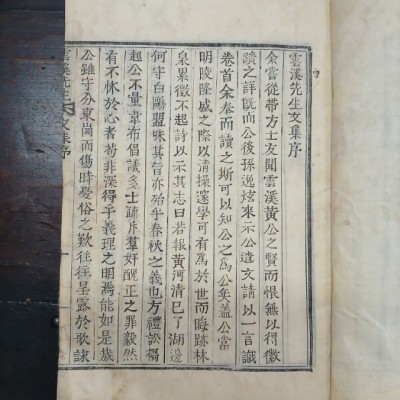 雲溪先生文集序
余嘗從帶方士友聞雲溪黃公之賢而悵無以得徵
蹟之詳旣而公後孫逸炫來示公遺文請以一言識
卷首余奉而讀之斯可以知公之爲公矣蓋公當
明陵隆盛之際以清操邃學可有爲於世而晦跡林
泉累徵不起詩以示其志曰若報黃河清已了湖邊
何守白鷗盟味其旨亦殆乎春秋之義也方禮訟搆
起公不量韋布倡議多士疏斥羣奸醜正之罪毅然
有不怵於心者苟非深得乎義理之明焉能如是哉
公雖守分東崗而傷時憂俗之歎往往呈露於歌詠
雲溪先生文集序 一